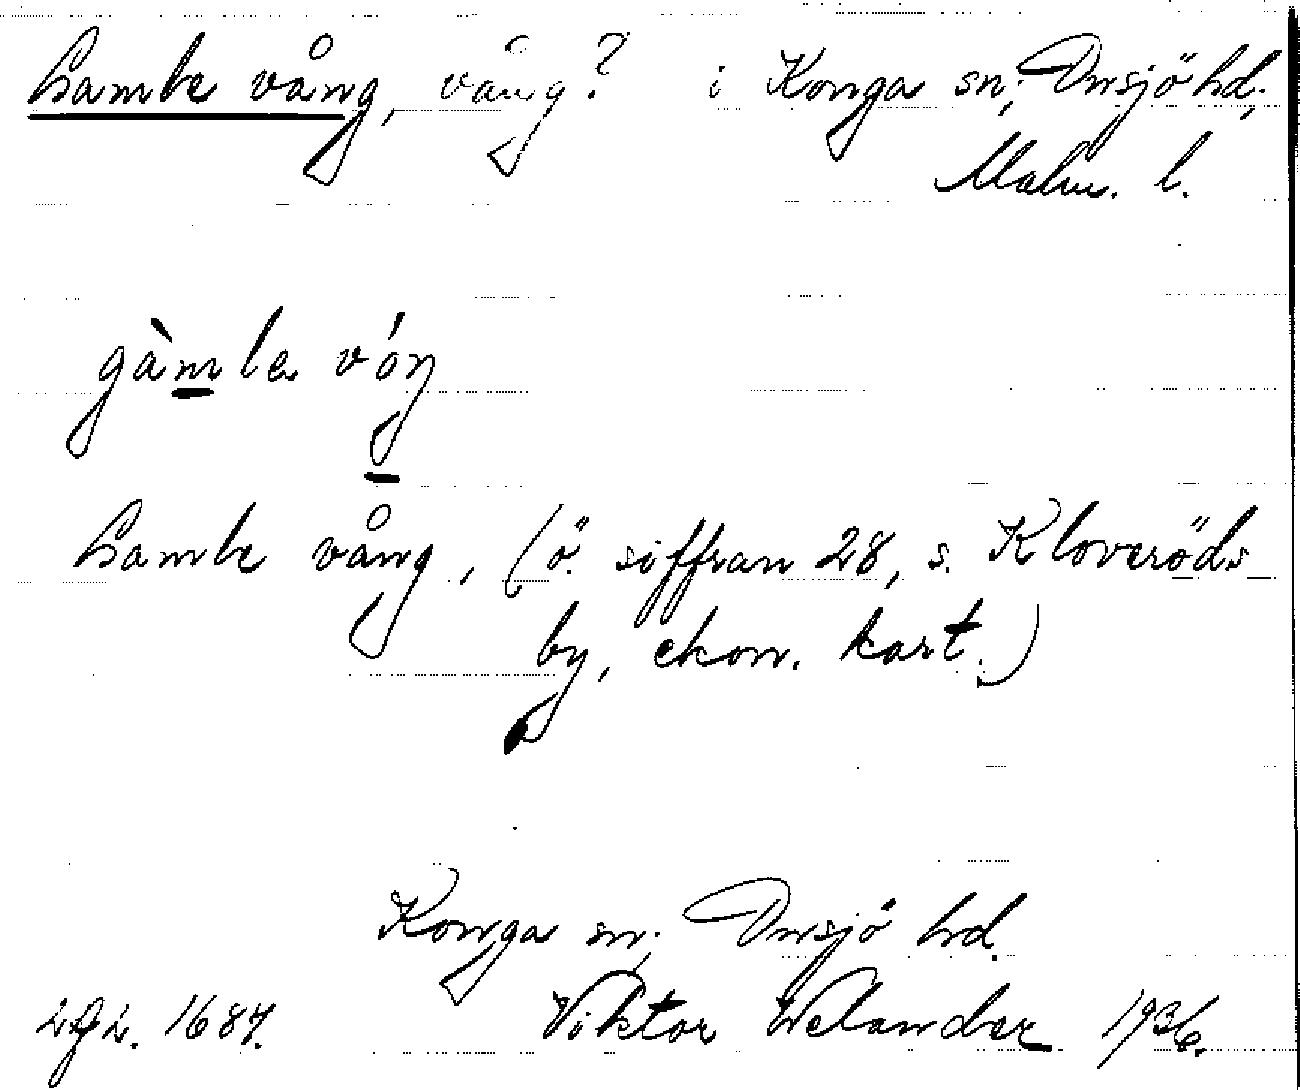 Gamle vång, vång? i Konga sn; Onsjö hd;
Malm. l.
gàmla vóŋ
Gamle vång, (ö. siffran 28, s. Kloveröds
by, ekon. kart.)
Konga sn; Onsjö hd.
1687. Viktor Welander 1936.